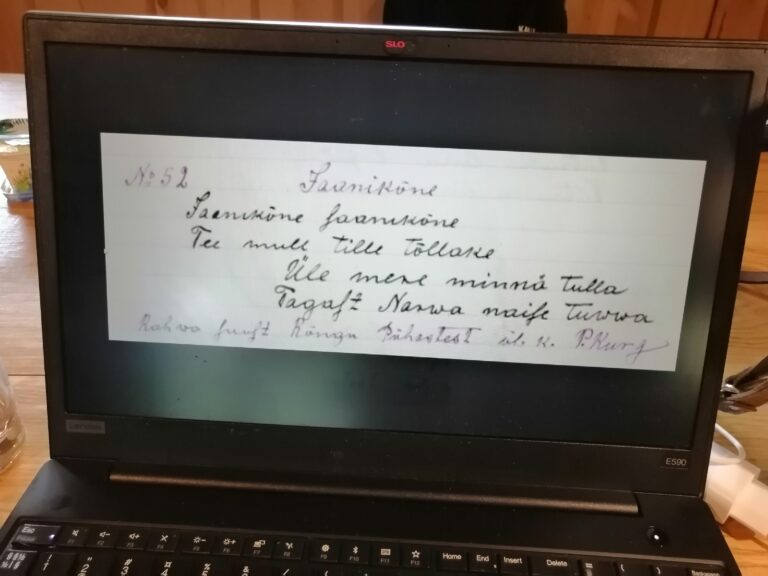 SLO
No 52 Saanikõne
Saanikõne saanikõne
Tee mull tille tõllake
Üle mere minnä tulla
Tagast Narwa naise tuwwa
Rahva suust Rõngu Pühastest ül. k. P. Kurg
Lenovo
E590
Esc
F5 F6 F7 F8 F9 F10 F11 F12 Home End Insert Delete
Backspace